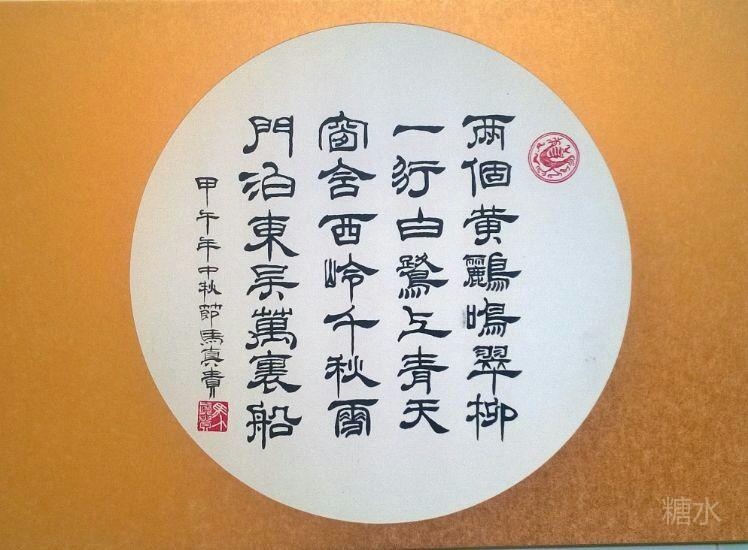 兩個黄鸝鳴翠柳
一行白鷺上青天
窗含西岭千秋雪
門泊東吴萬裏船
甲午年中秋節馬真貴
糖水